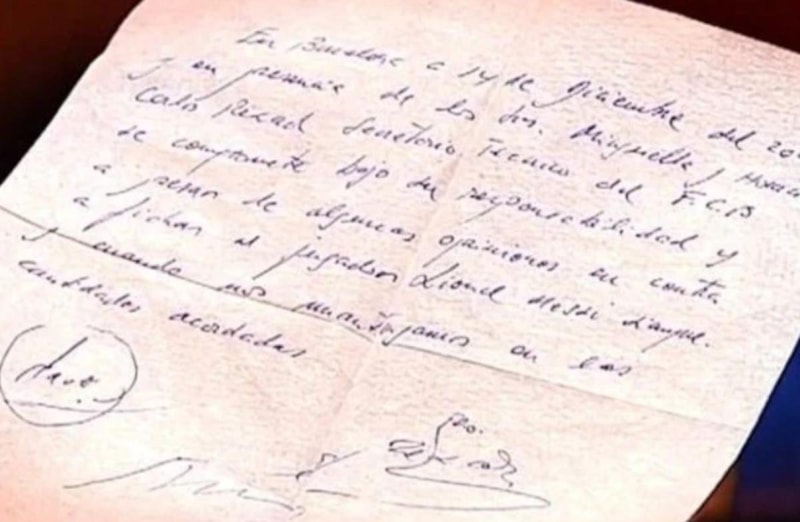 En Barcelona a 14 de Diciembre del 20
y en presencia de los Srs. Minguella y Horacio
Carlos Rexach Secretario Técnico del F.C.B
se compromete bajo su responsabilidad y
a pesar de algunas opiniones en contra
a fichar al jugador Lionel Messi siempre
y cuando nos mantengamos en las
cantidades acordadas